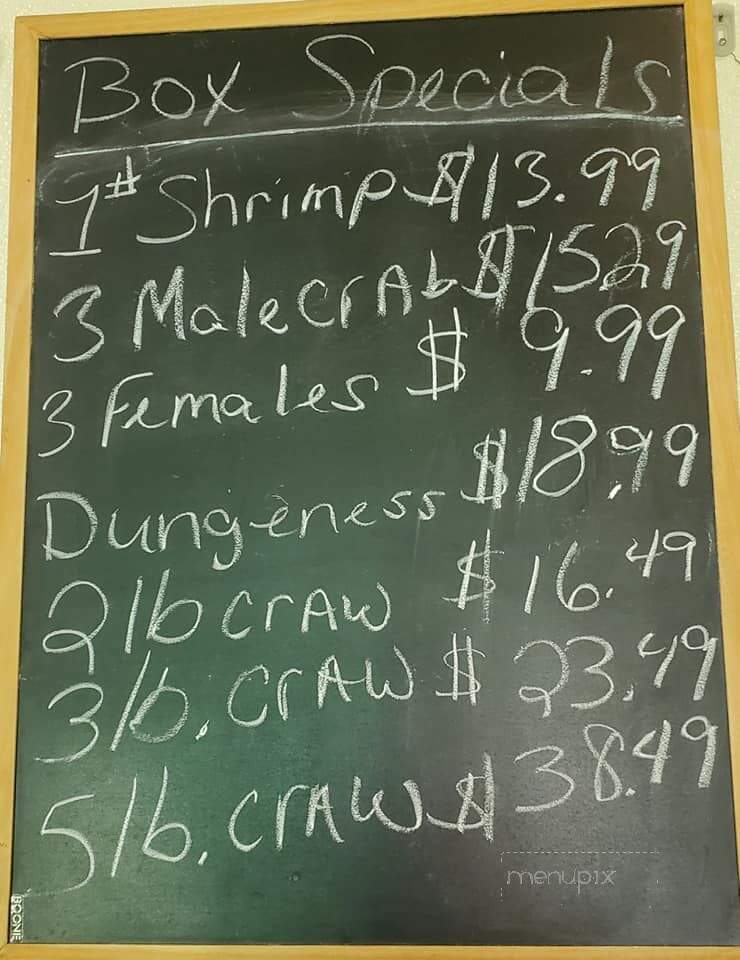 Box Specials
1# Shrimp $13.99
3 Male crAb $1529
3 Females $ 9.99
Dungeness $18.99
2lb crAw $16.49
3lb. crAw $23.49
5lb. crAw $38.49
menupix
BOONE